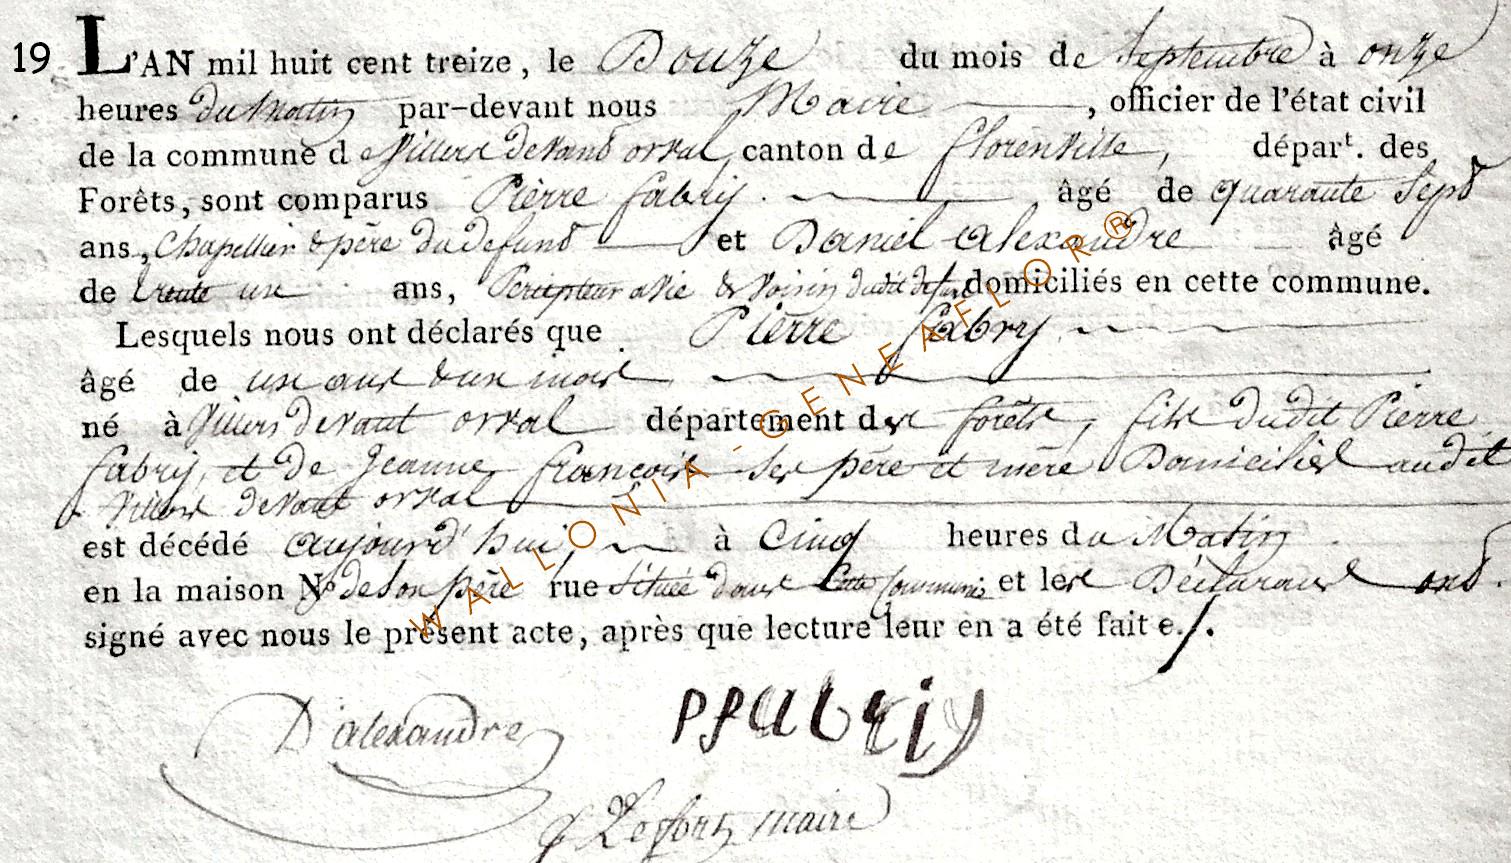 19 L'AN mil huit cent treize, le Douze du mois de Septembre à onze
heures du Matin par-devant nous Maire, officier de l'état civil
de la commune de Villers devant orval, canton de florenville, départ. des
Forêts, sont comparus Pierre fabry. âgé de quarante Sept
ans, Chapellier & père du defunt et Daniel alexandre âgé
de trente un ans, Percepteur a vie & Voisin dudit defunt domiciliés en cette commune.
Lesquels nous ont déclarés que Pierre fabry
âgé de un ans & un mois
né à Villers devant orval département des forêts, fils dudit Pierre
fabry, et de Jeanne françois ses père et mère Domiciliés audit
Villers devant orval
est décédé aujourd'hui, à Cinq heures du Matin
en la maison No de son père rue Située dans Cette Commune et les Déclarans ont
signé avec nous le présent acte, après que lecture leur en a été faite./.
D alexandre
p fabrij
Lefort, maire
WALLONIA - GENEAFLOR®